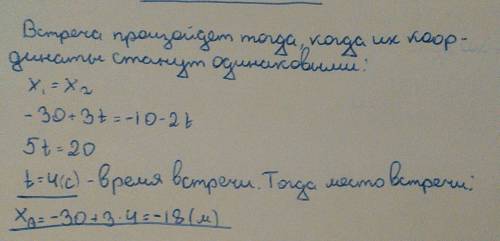 Встреча произойдет тогда, когда их коор-
динаты станут одинаковыми:
x₁ = x₂
-30+3t=-10-2t
5t=20
t=4(c) - время встречи. Тогда место встречи:
x₀=-30+3·4=-18(м)